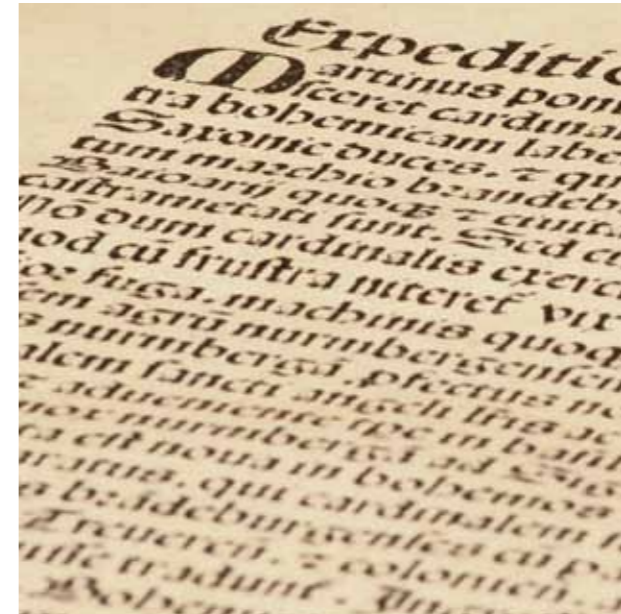 Expeditio
Martinus pon
sceret cardinal
tra bohemicam labe
Saxonie duces. ⁊ qu
tum marchio brandeb
Baioarij quoqꝫ ⁊ ciuita
castrametati sunt. Sed et
nō dum cardinalis exerci
uod cū frustra niteret vix
fuga. machinis quoq
em agrū nurmbergensem
s nurmbergā. pfectus
alem sancti angeli
adueniente spe in
nurmbergā ad
ta est noua in bohemos
uratus. qui cardinalem
brādeburgenses cū
Treueren. ⁊ colonien.
tradunt.